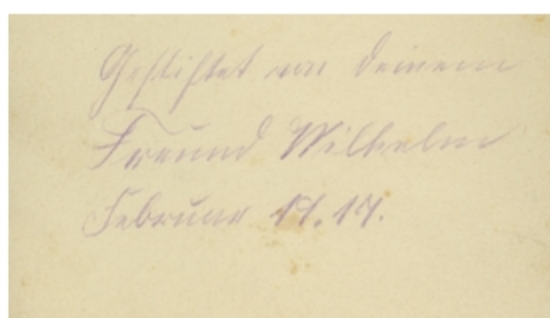 Gestiftet von deinem
Freund Wilhelm
Februar 19.17.